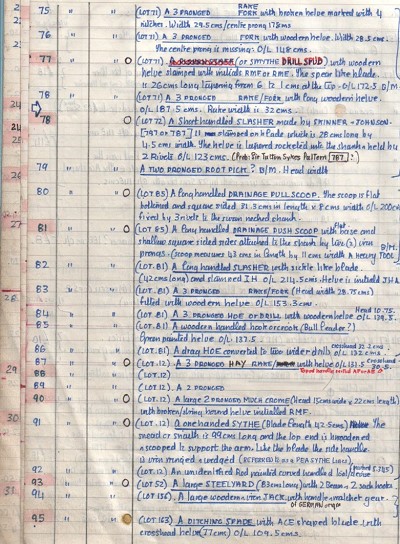 75 " " (LOT 71) A 3 PRONGED RAKE FORK with broken helve marked with 4
nitches. Width 29.5cms/centre prong 17.8cms
76 " " (LOT 71) A 3 PRONGED FORK with wooden helve. Width 28.5cms.
The centre prong is missing. O/L 148cms.
77 " " (LOT 71). (or SMYTHE DRILL SPUD) with wooden
helve stamped with initials RMF or RME. The spear like blade
is 26cms long tapering from 6.12 1cms at the tip. O/L 172.5 B/M.
78 " " (LOT 71) A 3 PRONGED RAKE/FORK with long wooden helve
O/L 187.5 cms. Rake width is 32cms.
78 " " (LOT 72) A Short handled SLASHER made by SKINNER + JOHNSON.
[787 or 787] stamped on blade which is 28cms long by
4.5cms width. The helve is tapered into the shank & held by
2 Rivets O/L 123cms. (Prob: Sir Tatton Sykes Pattern 787)
79 " " A TWO PRONGED ROOT PICK? B/M. Head width
80 " " (LOT 85) A long handled DRAINAGE PULL SCOOP. The scoop is flat
bottomed and square sided 31.5cms in length x 8cms width O/L 200cm
fixed by 3 rivets to the swan necked shank.
81 " " (LOT 85) A long handled DRAINAGE PUSH SCOOP with flat base and
shallow square sided sides attached to the shank by two (2) iron B/M.
prongs. (Scoop measures 43cms in length by 11cms width A HEAVY TOOL
82 " " (LOT. 81) A long handled SLASHER with sickle like blade.
(42cms long) and stamped I H O/L 211.5cms. Helve is initialed JHA
83 " " (LOT. 81) A 3 PRONGED RAKE/FORK (Head width 28.75cms)
fitted with wooden helve O/L 153.3cms.
84 " " (LOT. 81) A 3 PRONGED HOE or DRILL with wooden helve Head 10.75. O/L 139.5.
85 " " (LOT. 81) A wooden handled hook or crook (Bull Leader?)
Green painted helve O/L 137.5
86 " " (LOT. 81) A drag HOE converted to two wider drills crosshead 32.2cms O/L 132cms
87 " " (LOT. 12) A 3 PRONGED HAY RAKE with helve O/L 131.5 Crosshead 30.5.
88 " " (LOT. 12)
89 " " (LOT. 12). A 2 PRONGED
90 " " (LOT. 12) A large 2 PRONGED MUCK CROME (Head 15cms wide x 22cms length)
with broken/strong bound helve initialled RMF.
91 " " (LOT. 12) A one handed SYTHE (Blade length 42.5cms) The
snead or snaith is 99cms long and the top end is broadened
& scooped to support the arm. Like the blade the side handle
is iron ringed & wedged (REFERRED TO as a PEA SYTHE LOGG)
92 " " (LOT. 12) An unidentified Red painted curved handled tool/device
93 " " (LOT 52) A large STEELYARD (83cms long) with 2 Beam & 2 sack hooks
94 " " (LOT 156). A large wooden & iron JACK with handle & ratchet gear.
of GERMAN origin
95 " " (LOT. 163) A DITCHING SPADE with ACE shaped blade with
crosshead helve (77cms) O/L 109.5cms.